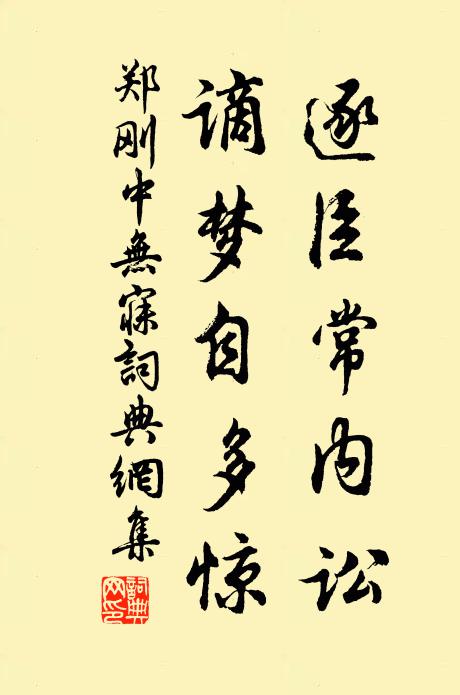 逐臣常内讼
谪梦自多惊
郑刚中無寐詞典網集
詞典网印